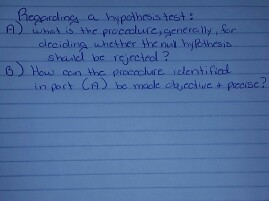 Regarding a hypothesis test:
A) what is the procedure, generally, for
deciding whether the null hypothesis
should be rejected?
B) How can the procedure identified
in part (A) be made objective + precise?